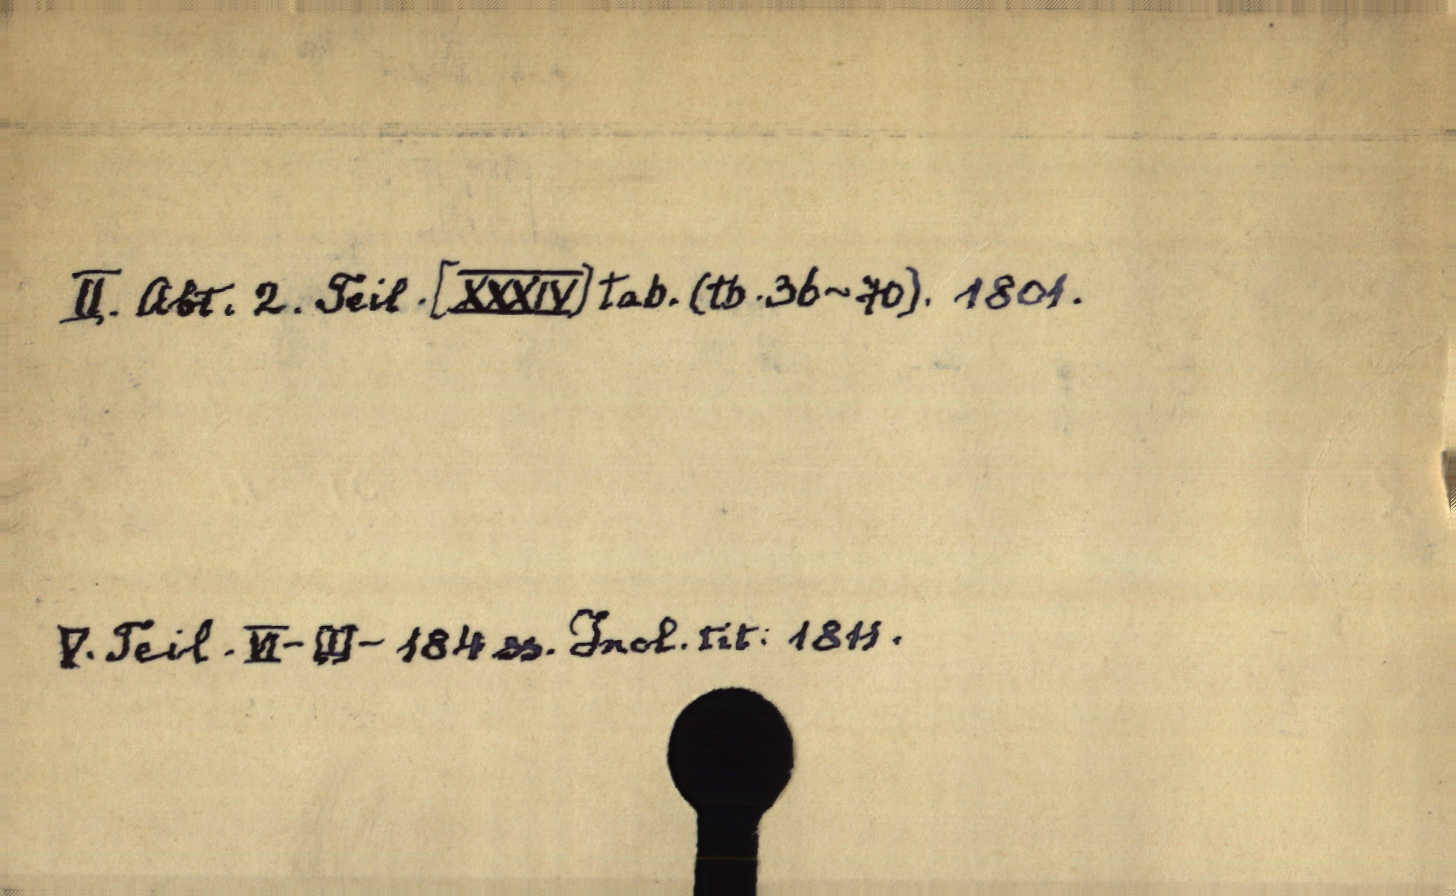 II. Abt. 2. Teil. [XXXIV] tab. (tb. 36~70). 1801.
V. Teil. VI-[II]- 184 ss. Incl. tit: 1811.